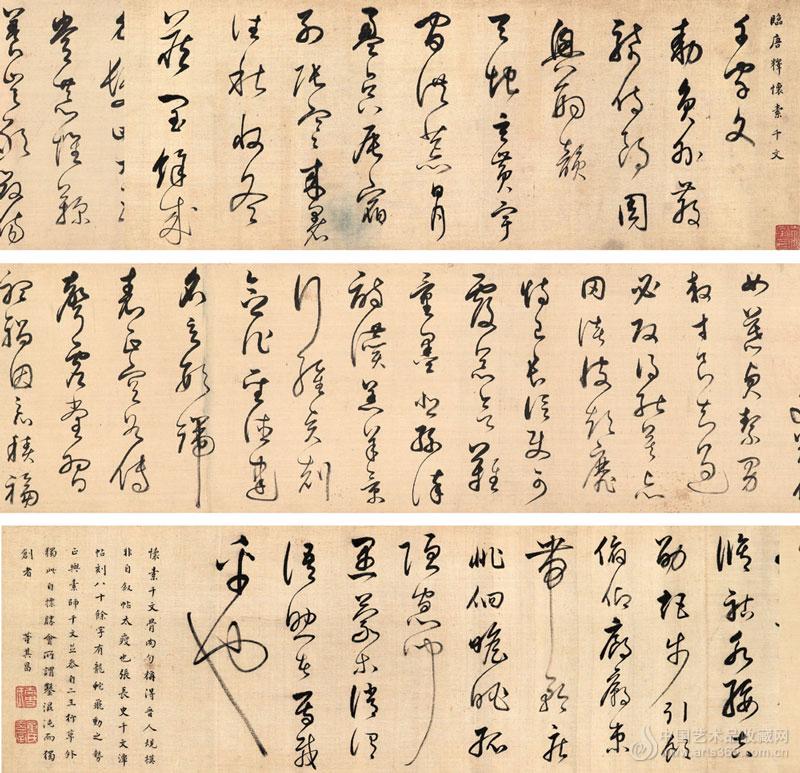 臨唐釋懷素千文
千字文
勅員外散
騎侍郎周
興嗣韻
天地玄黃宇
宙洪荒日月
盈昃辰宿
列張寒來暑
往秋收冬
藏閏餘成
髮四大五
常恭惟鞠
養豈敢毀傷
女慕貞絜男
效才良知過
必改得能莫忘
罔談彼短靡
恃己長信使可
覆器欲難
量墨悲絲
詩讚羔羊景
行維賢剋
念作聖德建
名立形端
表正空谷傳
聲虛堂習
聽禍因惡積福
脩祜永綏吉
劭矩步引領
俯仰廊廟束
帶矜莊
徘徊瞻眺孤
陋寡聞
愚蒙等誚謂
語助者焉哉
乎也
懷素千文骨肉勻稱得晉人規模
非自敘帖太瘦也張長史千文
帖刻八十餘字有龍蛇飛動之勢
正與素師千文並參自二王行草外
獨此自標勝會所謂鑿混沌而獨
創者 董其昌
中国艺术品收藏网
www.arts365.com